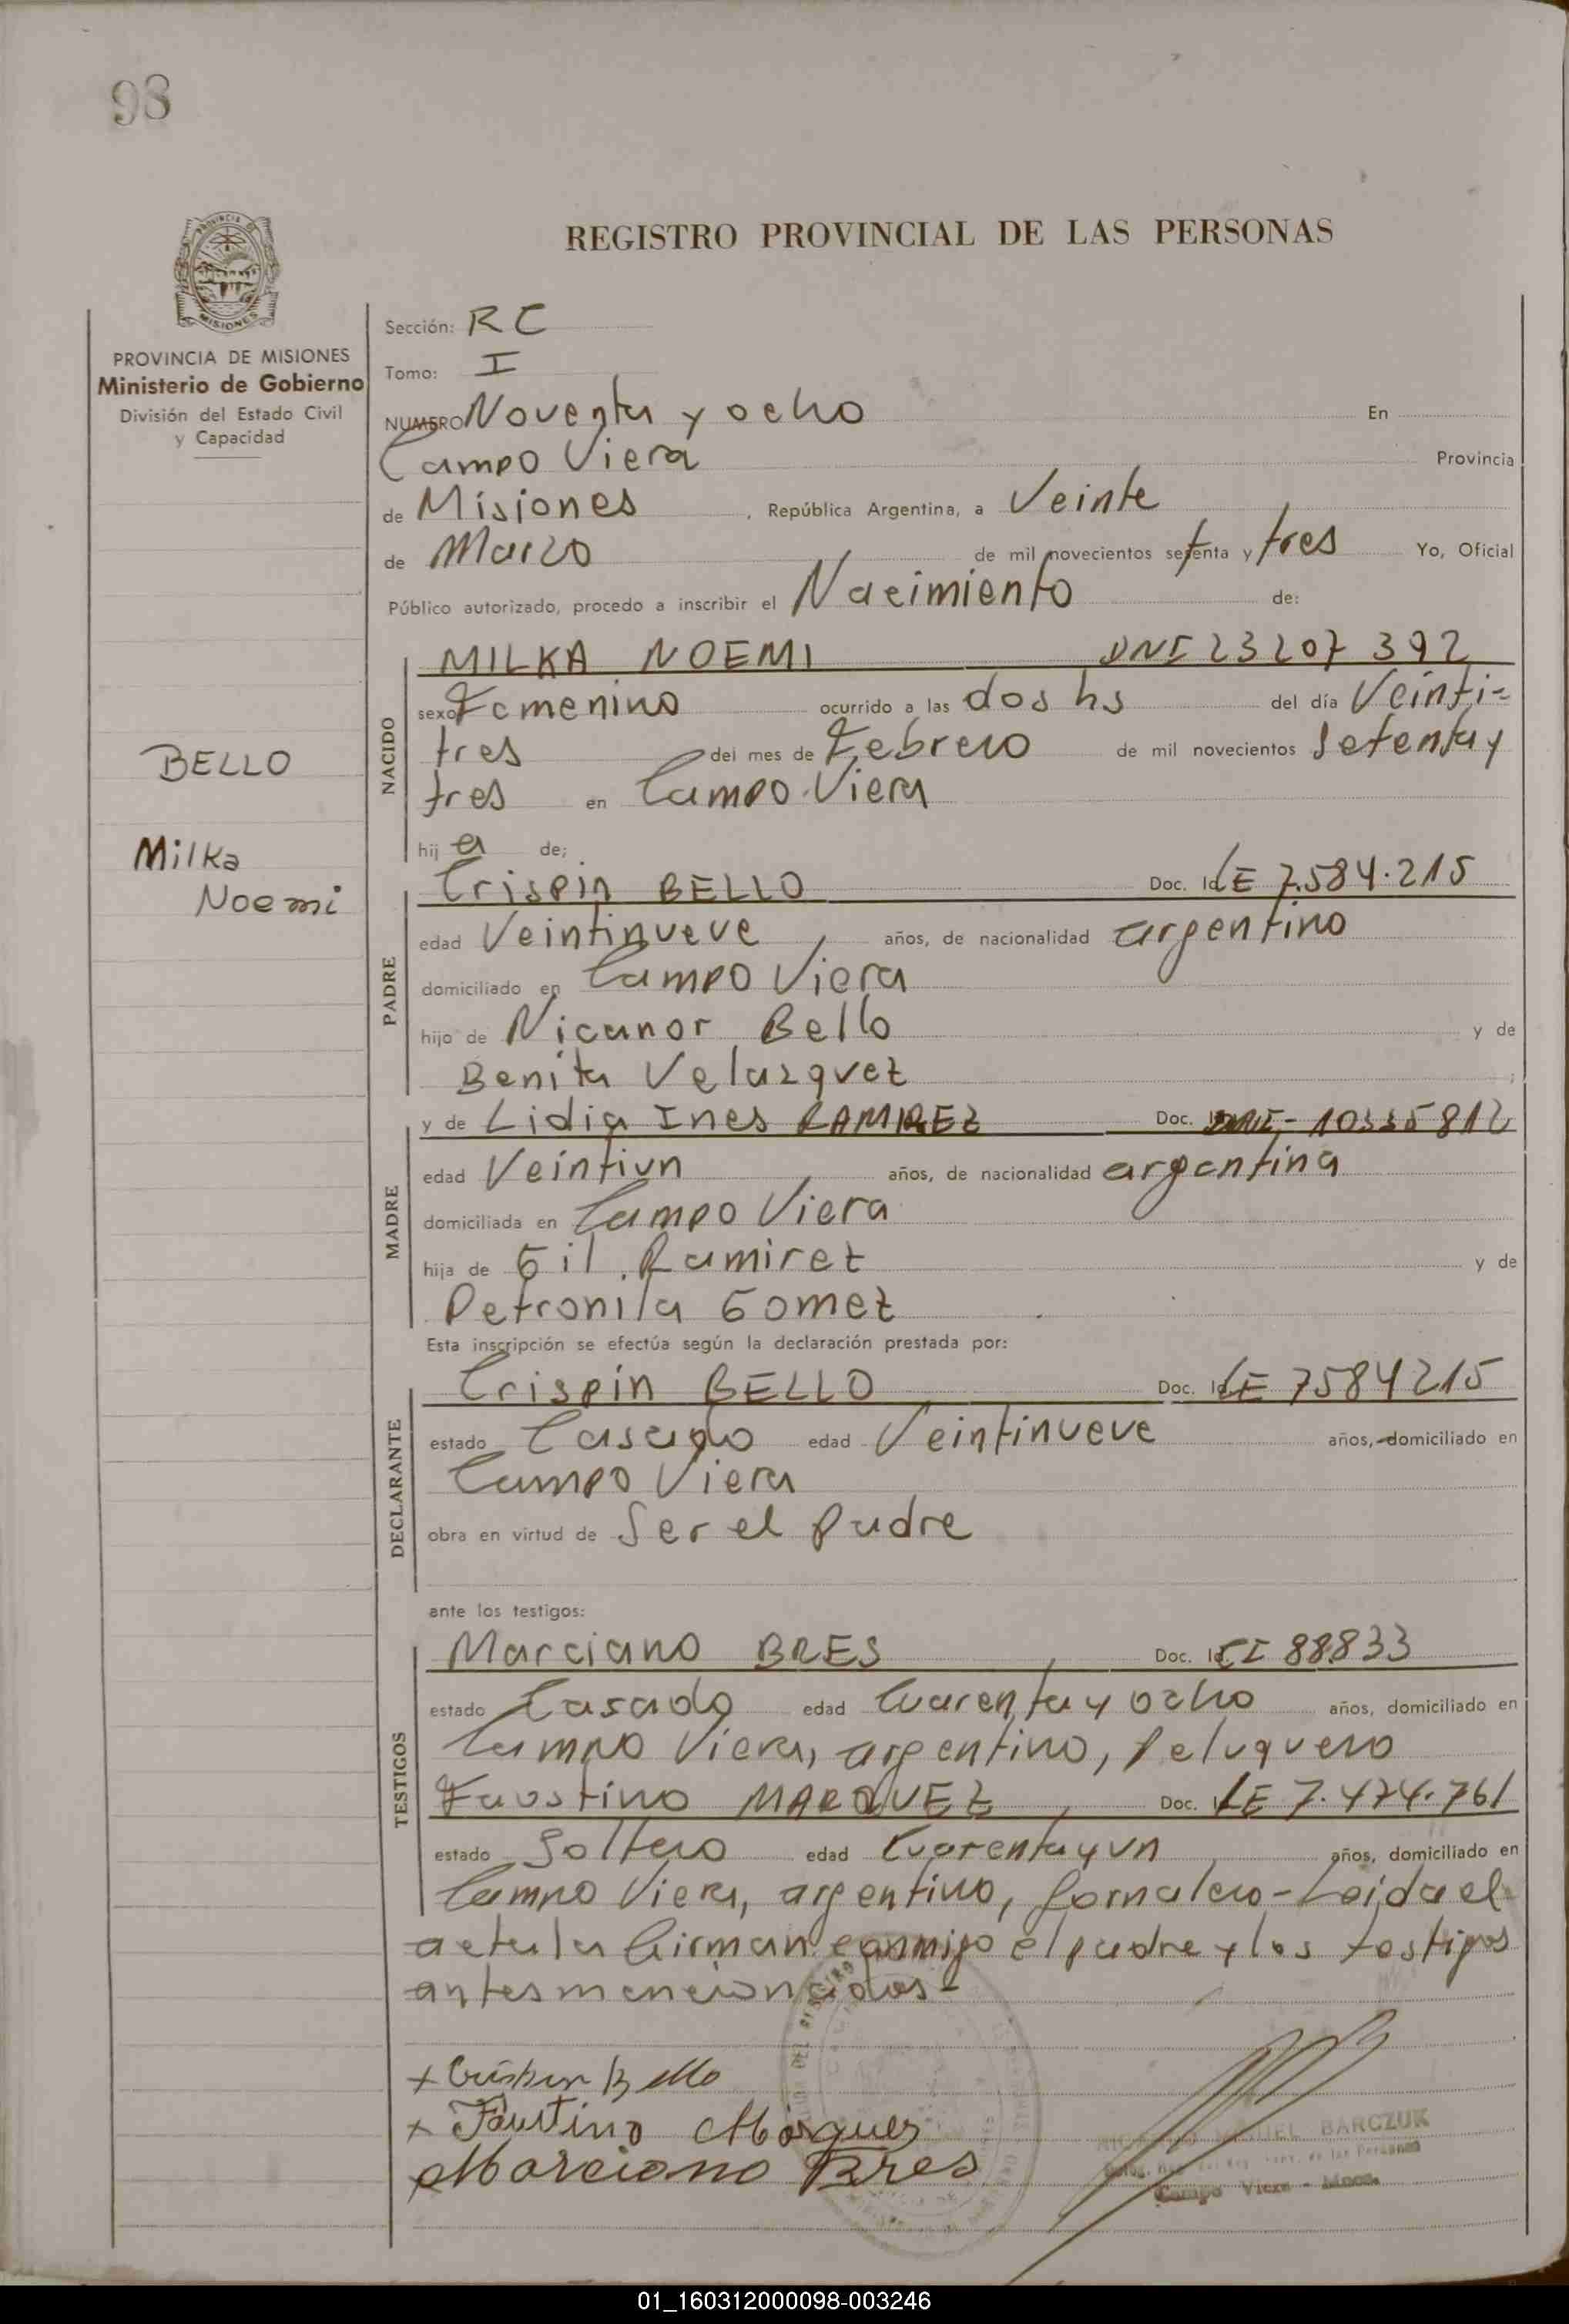 98
REGISTRO PROVINCIAL DE LAS PERSONAS
PROVINCIA DE MISIONES
Ministerio de Gobierno
División del Estado Civil
y Capacidad
BELLO
Milka
Noemi
Sección: RC
Tomo: I
NUMERO Noventa y ocho En
Campo Viera Provincia
de Misiones, República Argentina, a Veinte
de Marzo de mil novecientos setenta y tres Yo, Oficial
Público autorizado, procedo a inscribir el Nacimiento de:
NACIDO
MILKA NOEMI DNI 23207392
sexo Femenino ocurrido a las dos hs del día Veinti-
tres del mes de Febrero de mil novecientos Setenta y
tres en Campo Viera
hija de;
PADRE
Crispin BELLO Doc. Id LE 7.584.215
edad Veintinueve años, de nacionalidad argentino
domiciliado en Campo Viera
hijo de Nicanor Bello y de
Benita Velazquez;
MADRE
y de Lidia Ines RAMIREZ Doc.
edad Veintiun años, de nacionalidad argentina
domiciliada en Campo Viera
hija de Gil Ramirez y de
Petronila Gomez
Esta inscripción se efectúa según la declaración prestada por:
DECLARANTE
Crispin BELLO Doc. Id LE 7584215
estado Casado edad Veintinueve años, domiciliado en
Campo Viera
obra en virtud de Ser el Padre
ante los testigos:
TESTIGOS
Marciano BRES Doc. Id CI 88833
estado Casado edad Cuarenta y ocho años, domiciliado en
Campo Viera, argentino, Peluquero
Faustino MARQUEZ Doc. Id LE 7.474.761
estado Soltero edad Cuarenta y un años, domiciliado en
Campo Viera, argentino, Jornalero - Leida el
acta la firman conmigo el padre y los testigos
antes mencionados-
+ Crispin Bello
+ Faustino Marquez
Marciano Bres
MIGUEL BARCZUK
de las Personas
Campo Viera - Mnes.
01_160312000098-003246